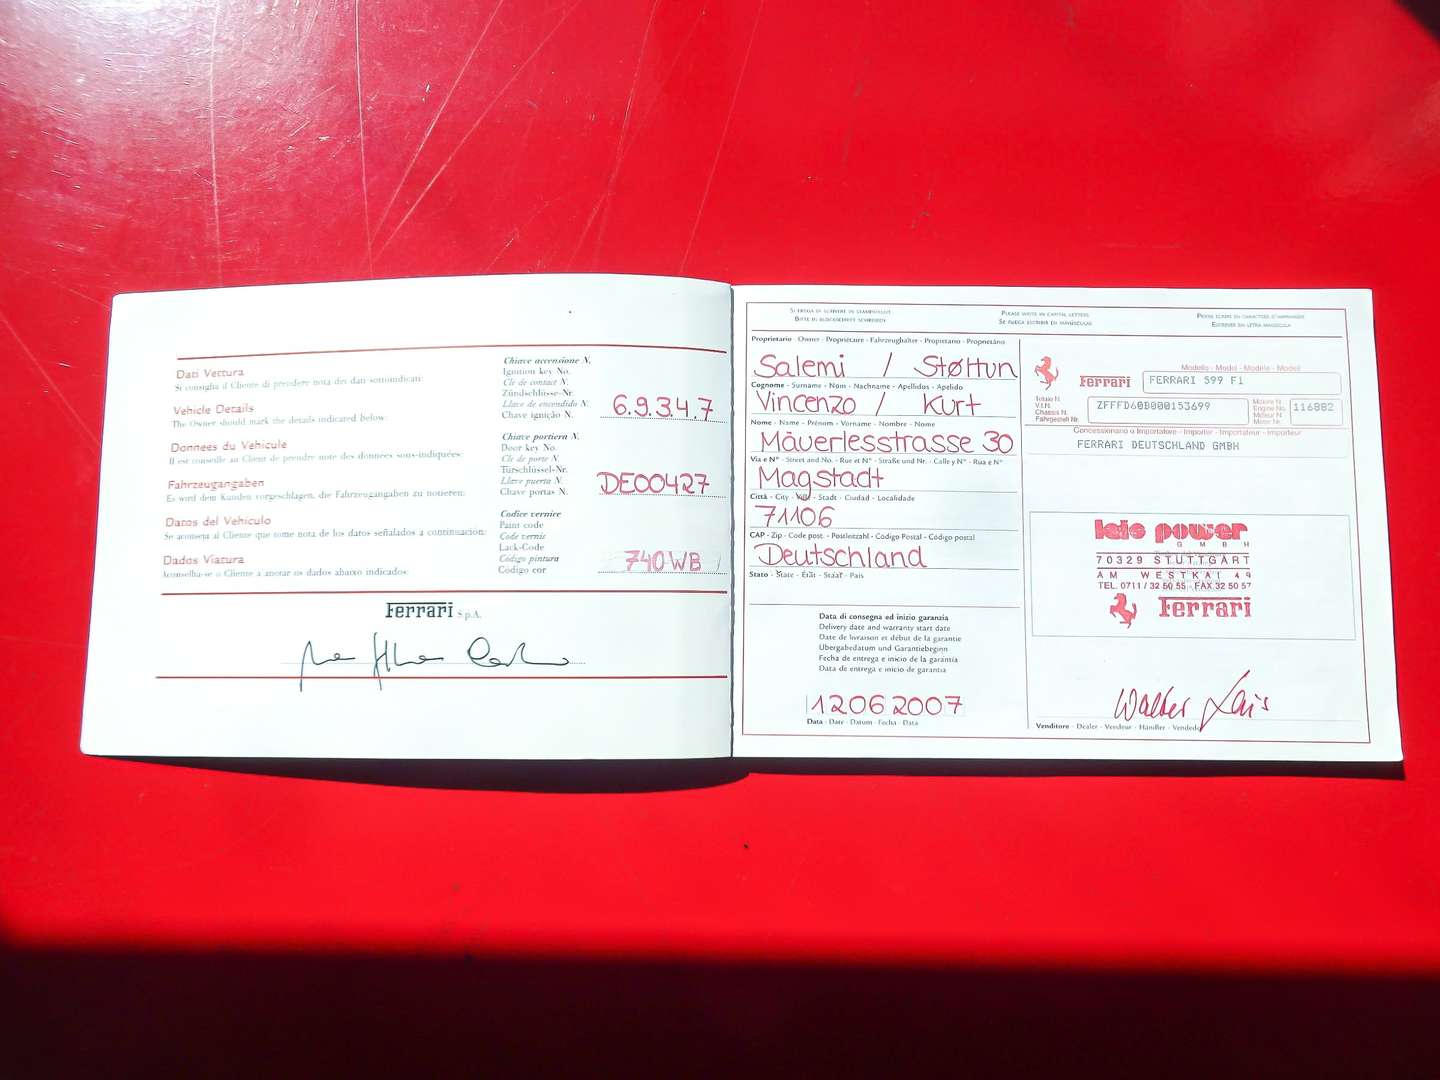 Dati Vettura
Si consiglia il Cliente di prendere nota dei dati sottoindicati:
Vehicle Details
The Owner should mark the details indicated below:
Donnees du Vehicule
Il est conseille au Client de prendre note des donnees sous-indiquées:
Fahrzeugangaben
Es wird dem Kunden vorgeschlagen, die Fahrzeugangaben zu notieren:
Datos del Vehiculo
Se aconseja al Cliente que tome nota de los datos señalados a continuación:
Dados Viatura
Aconselha-se o Cliente a anotar os dados abaixo indicados:
Chiave accensione N.
Ignition key No.
Cle de contact N.
Zündschlüsse-Nr.
Llave de encendido N.
Chave ignição N.
6.9.3.4.7
Chiave portiera N.
Door key No.
Cle de porte N.
Türschlüssel-Nr.
Llave puerta N.
Chave portas N.
DE00427
Codice vernice
Paint code
Code vernis
Lack-Code
Código pintura
Código cor
740 WB
Ferrari S.p.A.
Si prega di scrivere in stampatello
Bitte in blockschrift schreiben
Please write in capital letters
Se ruega escribir en mayúsculas
Escrever em letra maiúscula
Proprietario - Owner - Propriétaire - Fahrzeughalter - Propietario - Proprietário
Salemi / Støttun
Cognome - Surname - Nom - Nachname - Apellidos - Apelido
Vincenzo / Kurt
Nome - Name - Prénom - Vorname - Nombre - Nome
Mäuerlesstrasse 30
Via e N° - Street and No. - Rue et N° - Straße und Nr. - Calle y N° - Rua e N°
Magstadt
Città - City - Ville - Stadt - Ciudad - Localidade
71106
CAP - Zip - Code post. - Postleitzahl - Código Postal - Código postal
Deutschland
Stato - State - État - Staat - País
Data di consegna ed inizio garanzia
Delivery date and warranty start date
Date de livraison et début de la garantie
Übergabedatum und Garantiebeginn
Fecha de entrega e inicio de la garantía
Data de entrega e início de garantia
12 06 2007
Data - Date - Datum - Fecha - Data
Modello - Model - Modèle - Modell - Model
Ferrari
FERRARI 599 F1
Telaio N.
V.I.N.
Chassis N.
Fahrgestell Nr.
ZFFFD60B000153699
Motore N.
Engine No.
Moteur N.
Motor Nr.
116882
Concessionario o Importatore - Importer - Importateur - Importeur
FERRARI DEUTSCHLAND GMBH
lais power
GMBH
70329 STUTTGART
AM WESTKAI 49
TEL. 0711/32 50 55 · FAX 32 50 57
Ferrari
Walter Lais
Venditore - Dealer - Vendeur - Händler - Vendedor